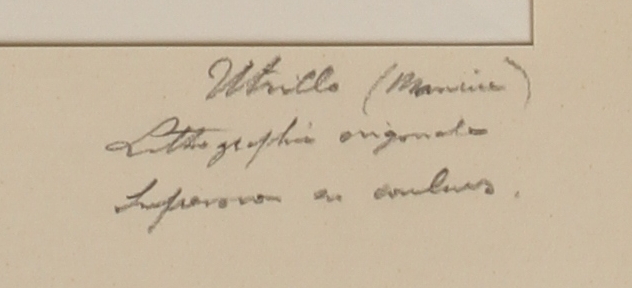 Utrillo (Maurice)
Lithographie originale
Impression en couleurs.